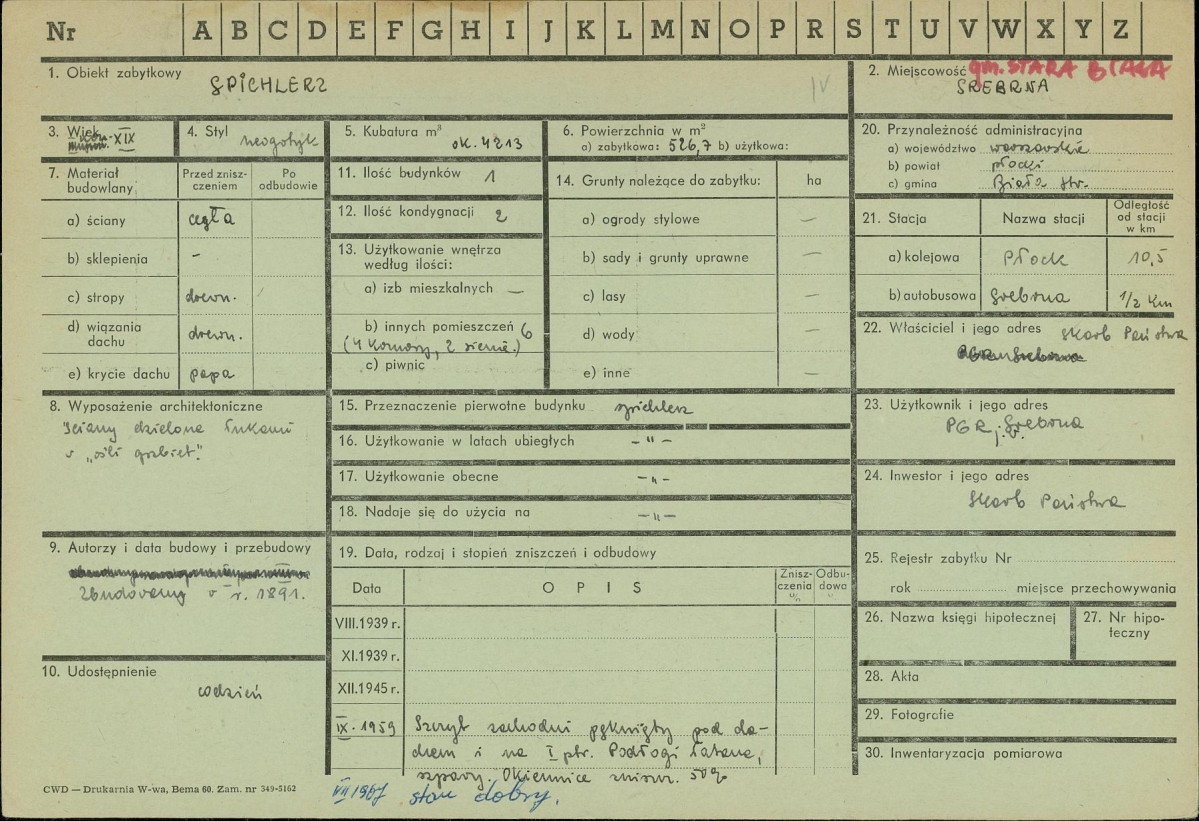 Nr A B C D E F G H I J K L M N O P R S T U V W X Y Z
1. Obiekt zabytkowy SPICHLERZ IV
2. Miejscowość gm. STARA BIAŁA
SREBRNA
3. Wiek kon. XIX
4. Styl neogotyk
5. Kubatura m³ ok. 4213
6. Powierzchnia w m²
a) zabytkowa: 526,7 b) użytkowa:
7. Materiał budowlany
Przed zniszczeniem
Po odbudowie
a) ściany cegła
b) sklepienia –
c) stropy drewn.
d) wiązania dachu drewn.
e) krycie dachu papa
8. Wyposażenie architektoniczne
Ściany dzielone łukami
w „ośli grzbiet".
9. Autorzy i data budowy i przebudowy
Zbudowany w r. 1891.
10. Udostępnienie
codzień
11. Ilość budynków 1
12. Ilość kondygnacji 2
13. Użytkowanie wnętrza
według ilości:
a) izb mieszkalnych —
b) innych pomieszczeń 6
(4 komory, 2 sienie.)
c) piwnic
14. Grunty należące do zabytku: ha
a) ogrody stylowe —
b) sady i grunty uprawne —
c) lasy —
d) wody —
e) inne —
15. Przeznaczenie pierwotne budynku spichlerz
16. Użytkowanie w latach ubiegłych – " –
17. Użytkowanie obecne – " –
18. Nadaje się do użycia na – " –
19. Data, rodzaj i stopień zniszczeń i odbudowy
Data
O P I S
Zniszczenia %
Odbudowa %
VIII.1939 r.
XI.1939 r.
XII.1945 r.
IX. 1959 Szczyt zachodni pęknięty pod da-
chem i na I ptr. Podłogi łatane,
szpary. Okiennice zniszcz. 50%
VII 1967 stan dobry.
20. Przynależność administracyjna
a) województwo warszawskie
b) powiat płocki
c) gmina Biała Str.
21. Stacja
Nazwa stacji
Odległość
od stacji
w km
a) kolejowa Płock 10,5
b) autobusowa Srebrna 1/2 km
22. Właściciel i jego adres Skarb Państwa
PGR Srebrna
23. Użytkownik i jego adres
PGR j.w. Srebrna
24. Inwestor i jego adres
Skarb Państwa
25. Rejestr zabytku Nr
rok miejsce przechowywania
26. Nazwa księgi hipotecznej
27. Nr hipo-
teczny
28. Akta
29. Fotografie
30. Inwentaryzacja pomiarowa
CWD — Drukarnia W-wa, Bema 60. Zam. nr 349-5162